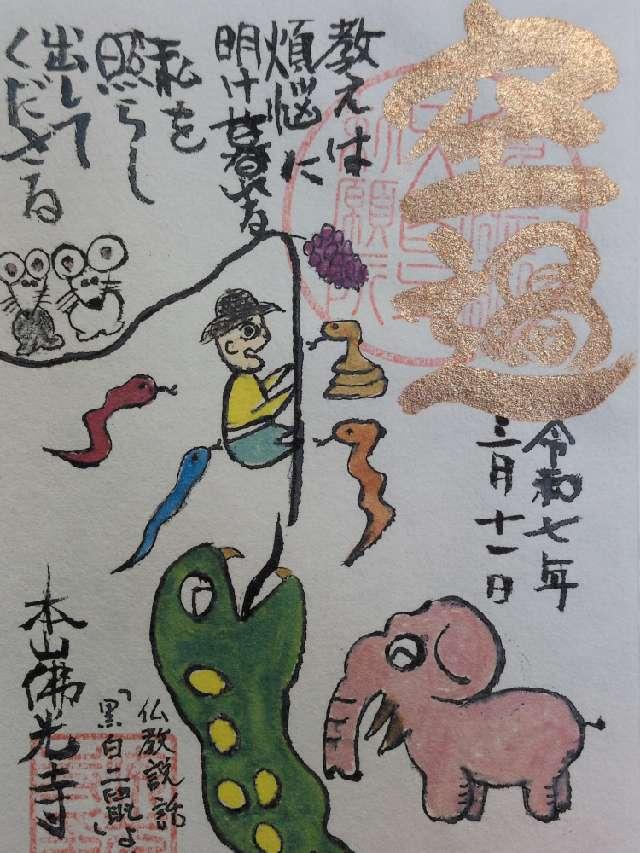 空過
教えは
煩悩に
明け暮れる
私を
照らし
出して
くださる
令和七年
三月十一日
本山佛光寺
仏教説話
「黒白二鼠」より